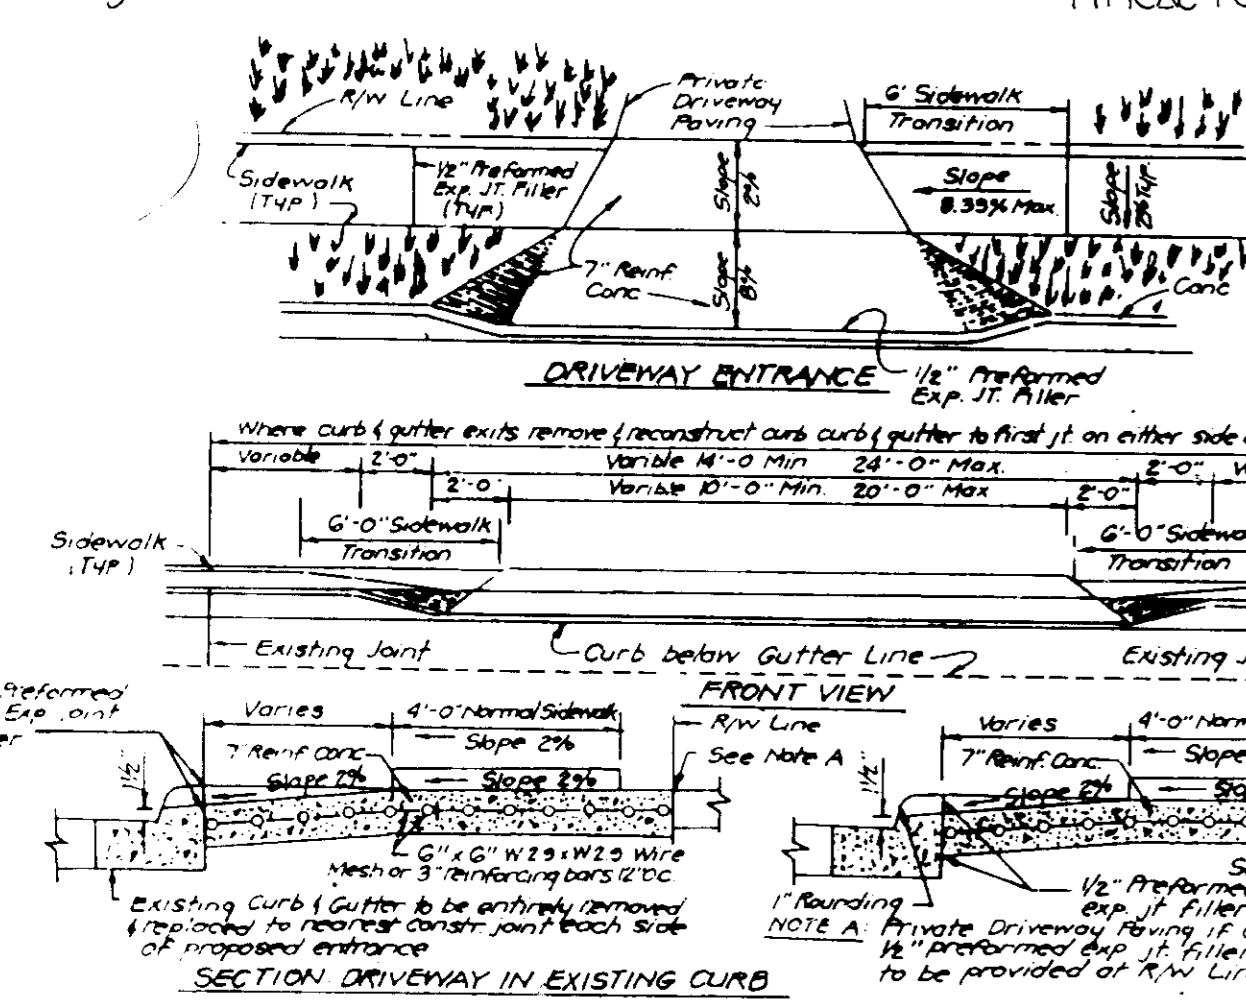 Private
Driveway
Paving
R/W Line
6' Sidewalk
Transition
Sidewalk
(TYP)
1/2" Preformed
Exp. JT. Filler
(TYP)
Slope
2%
Slope
8.33% Max.
Slope
2% Typ.
7" Reinf.
Conc
Slope
8%
Conc
DRIVEWAY ENTRANCE
1/2" Preformed
Exp. JT. Filler
Where curb & gutter exits remove & reconstruct curb curb & gutter to first jt. on either side
Variable
2'-0"
Varible 14'-0 Min 24'-0" Max.
2'-0"
2'-0
Varible 10'-0" Min. 20'-0" Max
2'-0"
6'-0" Sidewalk
Transition
6'-0" Sidewa
Transition
Sidewalk
(TYP)
Existing Joint
Curb below Gutter Line
Existing J
FRONT VIEW
Preformed
Exp Joint
er
Varies
4'-0" Normal Sidewalk
Slope 2%
R/W Line
See Note A
7" Reinf. Conc.
Slope 2%
Slope 2%
1 1/2"
6" x 6" W2.9 x W2.9 Wire
Mesh or 3" reinforcing bars 12" O.C.
Existing Curb & Gutter to be entirely removed
& replaced to nearest constr. joint each side
of proposed entrance
SECTION DRIVEWAY IN EXISTING CURB
Varies
4'-0" Norm
Slope
7" Reinf. Conc.
Slope 2%
1 1/2"
1" Rounding
1/2" Preforme
exp. jt filler
NOTE A: Private Driveway Paving if
1/2" preformed exp jt. fille
to be provided at R/W Lin